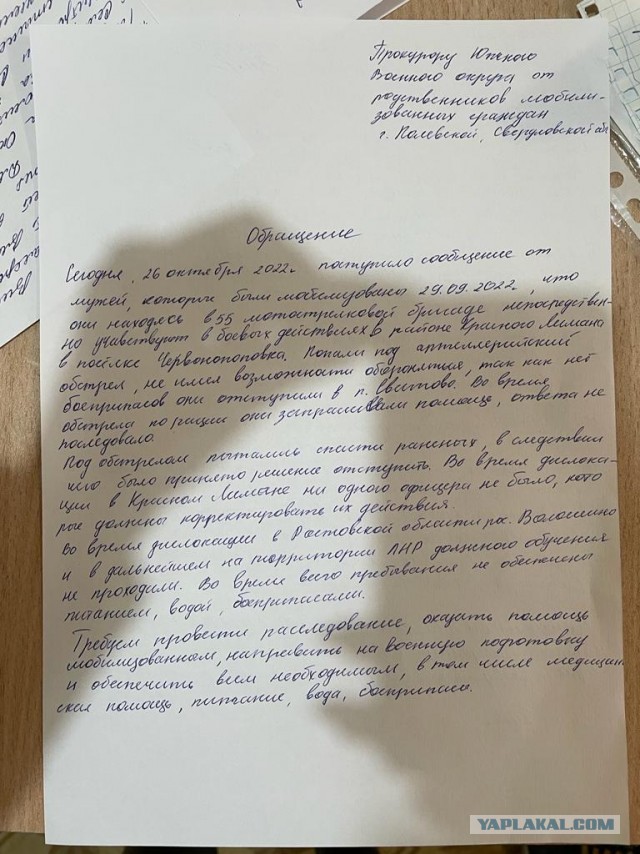 Прокурору Южного
Военного округа от
родственников мобили-
зованных граждан
г. Полевской, Свердловской об
Обращение
Сегодня, 26 октября 2022г. поступило сообщение от
мужей, которые были мобилизованы 29.09.2022, что
они находясь в 55 мотострелковой бригаде непосредствен-
но учавствуют в боевых действиях в районе Красного Лимана
в посёлке Червонопоповка. Попали под артеллерийский
обстрел, не имея возможности обороняться, так как нет
боеприпасов они отступили в п. Сватово. Во время
обстрела по рации они запрашивали помощь, ответа не
последовало.
Под обстрелом пытались спасти раненых, в следствии
чего было принято решение отступать. Во время дислока-
ции в Красном Лимане ни одного офицера не было, кото
рые должны корректировать их действия.
Во время дислокации в Ростовской области рп. Волошино
и в дальнейшем на территории ЛНР должного обучения
не проходили. Во время всего пребывания не обеспечены
питанием, водой, боеприпасами.
Требуем провести расследование, оказать помощь
мобилизованном, направить на военную подготовку
и обеспечить всем необходимым, в том числе медицин
ская помощь, питание, вода, боеприпасы.
YAPLAKAL.COM